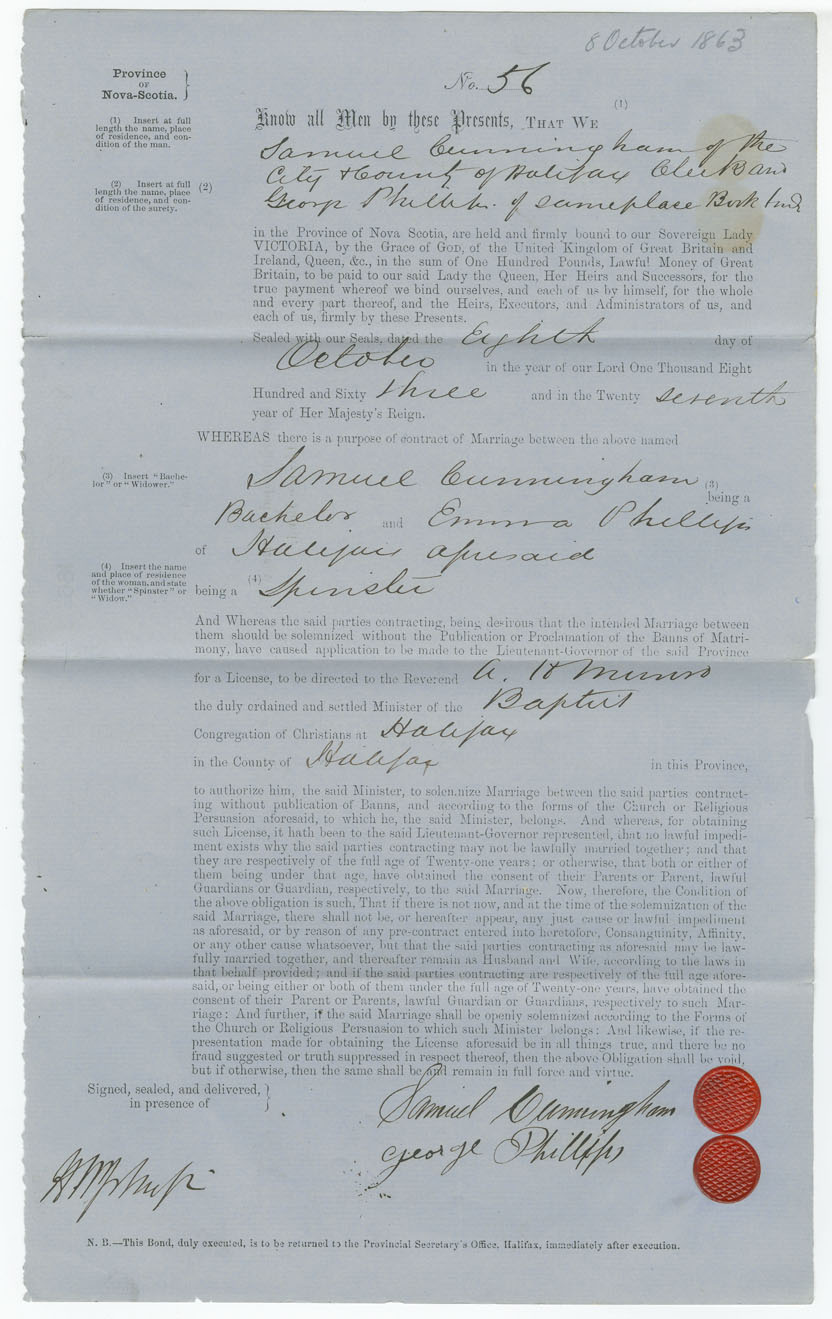 8 October 1863
Province
OF
Nova-Scotia.
No. 56
(1)
(1) Insert at full
length the name, place
of residence, and con-
dition of the man.
Know all Men by these Presents, THAT WE
Samuel Cunningham of the
City & County of Halifax Clerk and
(2) Insert at full
length the name, place
of residence, and con-
dition of the surety.
(2)
George Phillips of same place Book
in the Province of Nova Scotia, are held and firmly bound to our Sovereign Lady
VICTORIA, by the Grace of GOD, of the United Kingdom of Great Britain and
Ireland, Queen, &c., in the sum of One Hundred Pounds, Lawful Money of Great
Britain, to be paid to our said Lady the Queen, Her Heirs and Successors, for the
true payment whereof we bind ourselves, and each of us by himself, for the whole
and every part thereof, and the Heirs, Executors, and Administrators of us, and
each of us, firmly by these Presents.
Sealed with our Seals, dated the Eighth day of
October in the year of our Lord One Thousand Eight
Hundred and Sixty three and in the Twenty seventh
year of Her Majesty's Reign.
WHEREAS there is a purpose of contract of Marriage between the above named
(3) Insert "Bache-
lor" or "Widower."
Samuel Cunningham (3)
being a
Bachelor and Emma Phillips
of Halifax aforesaid
(4) Insert the name
and place of residence
of the woman, and state
whether "Spinster" or
"Widow."
being a (4) Spinster
And Whereas the said parties contracting, being desirous that the intended Marriage between
them should be solemnized without the Publication or Proclamation of the Banns of Matri-
mony, have caused application to be made to the Lieutenant-Governor of the said Province
for a License, to be directed to the Reverend A. H Munro
the duly ordained and settled Minister of the Baptist
Congregation of Christians at Halifax
in the County of Halifax in this Province,
to authorize him, the said Minister, to solemnize Marriage between the said parties contract-
ing without publication of Banns, and according to the forms of the Church or Religious
Persuasion aforesaid, to which he, the said Minister, belongs. And whereas, for obtaining
such License, it hath been to the said Lieutenant-Governor represented, that no lawful impedi-
ment exists why the said parties contracting may not be lawfully married together; and that
they are respectively of the full age of Twenty-one years; or otherwise, that both or either of
them being under that age, have obtained the consent of their Parents or Parent, lawful
Guardians or Guardian, respectively, to the said Marriage. Now, therefore, the Condition of
the above obligation is such, That if there is not now, and at the time of the solemnization of the
said Marriage, there shall not be, or hereafter appear, any just cause or lawful impediment
as aforesaid, or by reason of any pre-contract entered into heretofore, Consanguinity, Affinity,
or any other cause whatsoever, but that the said parties contracting as aforesaid may be law-
fully married together, and thereafter remain as Husband and Wife, according to the laws in
that behalf provided; and if the said parties contracting are respectively of the full age afore-
said, or being either or both of them under the full age of Twenty-one years, have obtained the
consent of their Parent or Parents, lawful Guardian or Guardians, respectively to such Mar-
riage: And further, if the said Marriage shall be openly solemnized according to the Forms of
the Church or Religious Persuasion to which such Minister belongs: And likewise, if the re-
presentation made for obtaining the License aforesaid be in all things true, and there be no
fraud suggested or truth suppressed in respect thereof, then the above Obligation shall be void,
but if otherwise, then the same shall be and remain in full force and virtue.
Signed, sealed, and delivered,
in presence of
Samuel Cunningham
George Phillips
N. B.—This Bond, duly executed, is to be returned to the Provincial Secretary's Office, Halifax, immediately after execution.